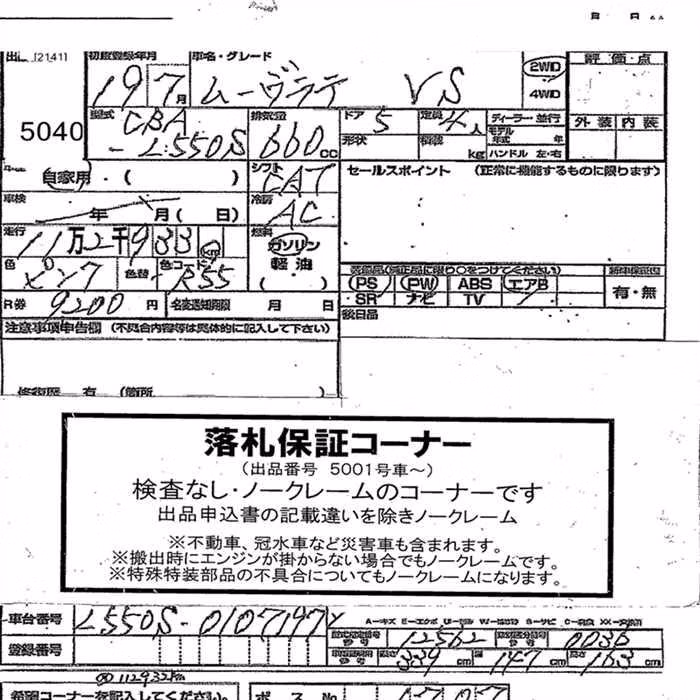 月 日
[2141] 初度登録年月 車名・グレード 評価・点
19 7月 ムーヴラテ VS 2WD
4WD
5040 型式 CBA-L550S 排気量 660cc ドア 5 定員 4人 ディーラー・並行 外装 内装
形状 積載 kg モデル年式 年 ハンドル 左・右
自家用・( ) シフト CAT セールスポイント (正常に機能するものに限ります)
車検 年 月( 日) 冷房 AC
走行 11万2千933km 燃料 ガソリン
軽油
色 ピンク 色替 色コード R55 装備品(純正品に限り○をつけてください) 新車保証書
PS PW ABS エアB 有・無
SR ナビ TV
R券 9200円 名変通知期限 月 日 後日品
注意事項申告欄 (不具合内容等は具体的に記入して下さい)
修復歴 有 (箇所 )
落札保証コーナー
(出品番号 5001号車~)
検査なし・ノークレームのコーナーです
出品申込書の記載違いを除きノークレーム
※不動車、冠水車など災害車も含まれます。
※搬出時にエンジンが掛からない場合でもノークレームです。
※特殊特装部品の不具合についてもノークレームになります。
車台番号 L550S-0107147
登録番号 12562 0036
339cm 幅 147cm 高さ 163cm
112932km
希望コーナーを記入してください。 ポス No